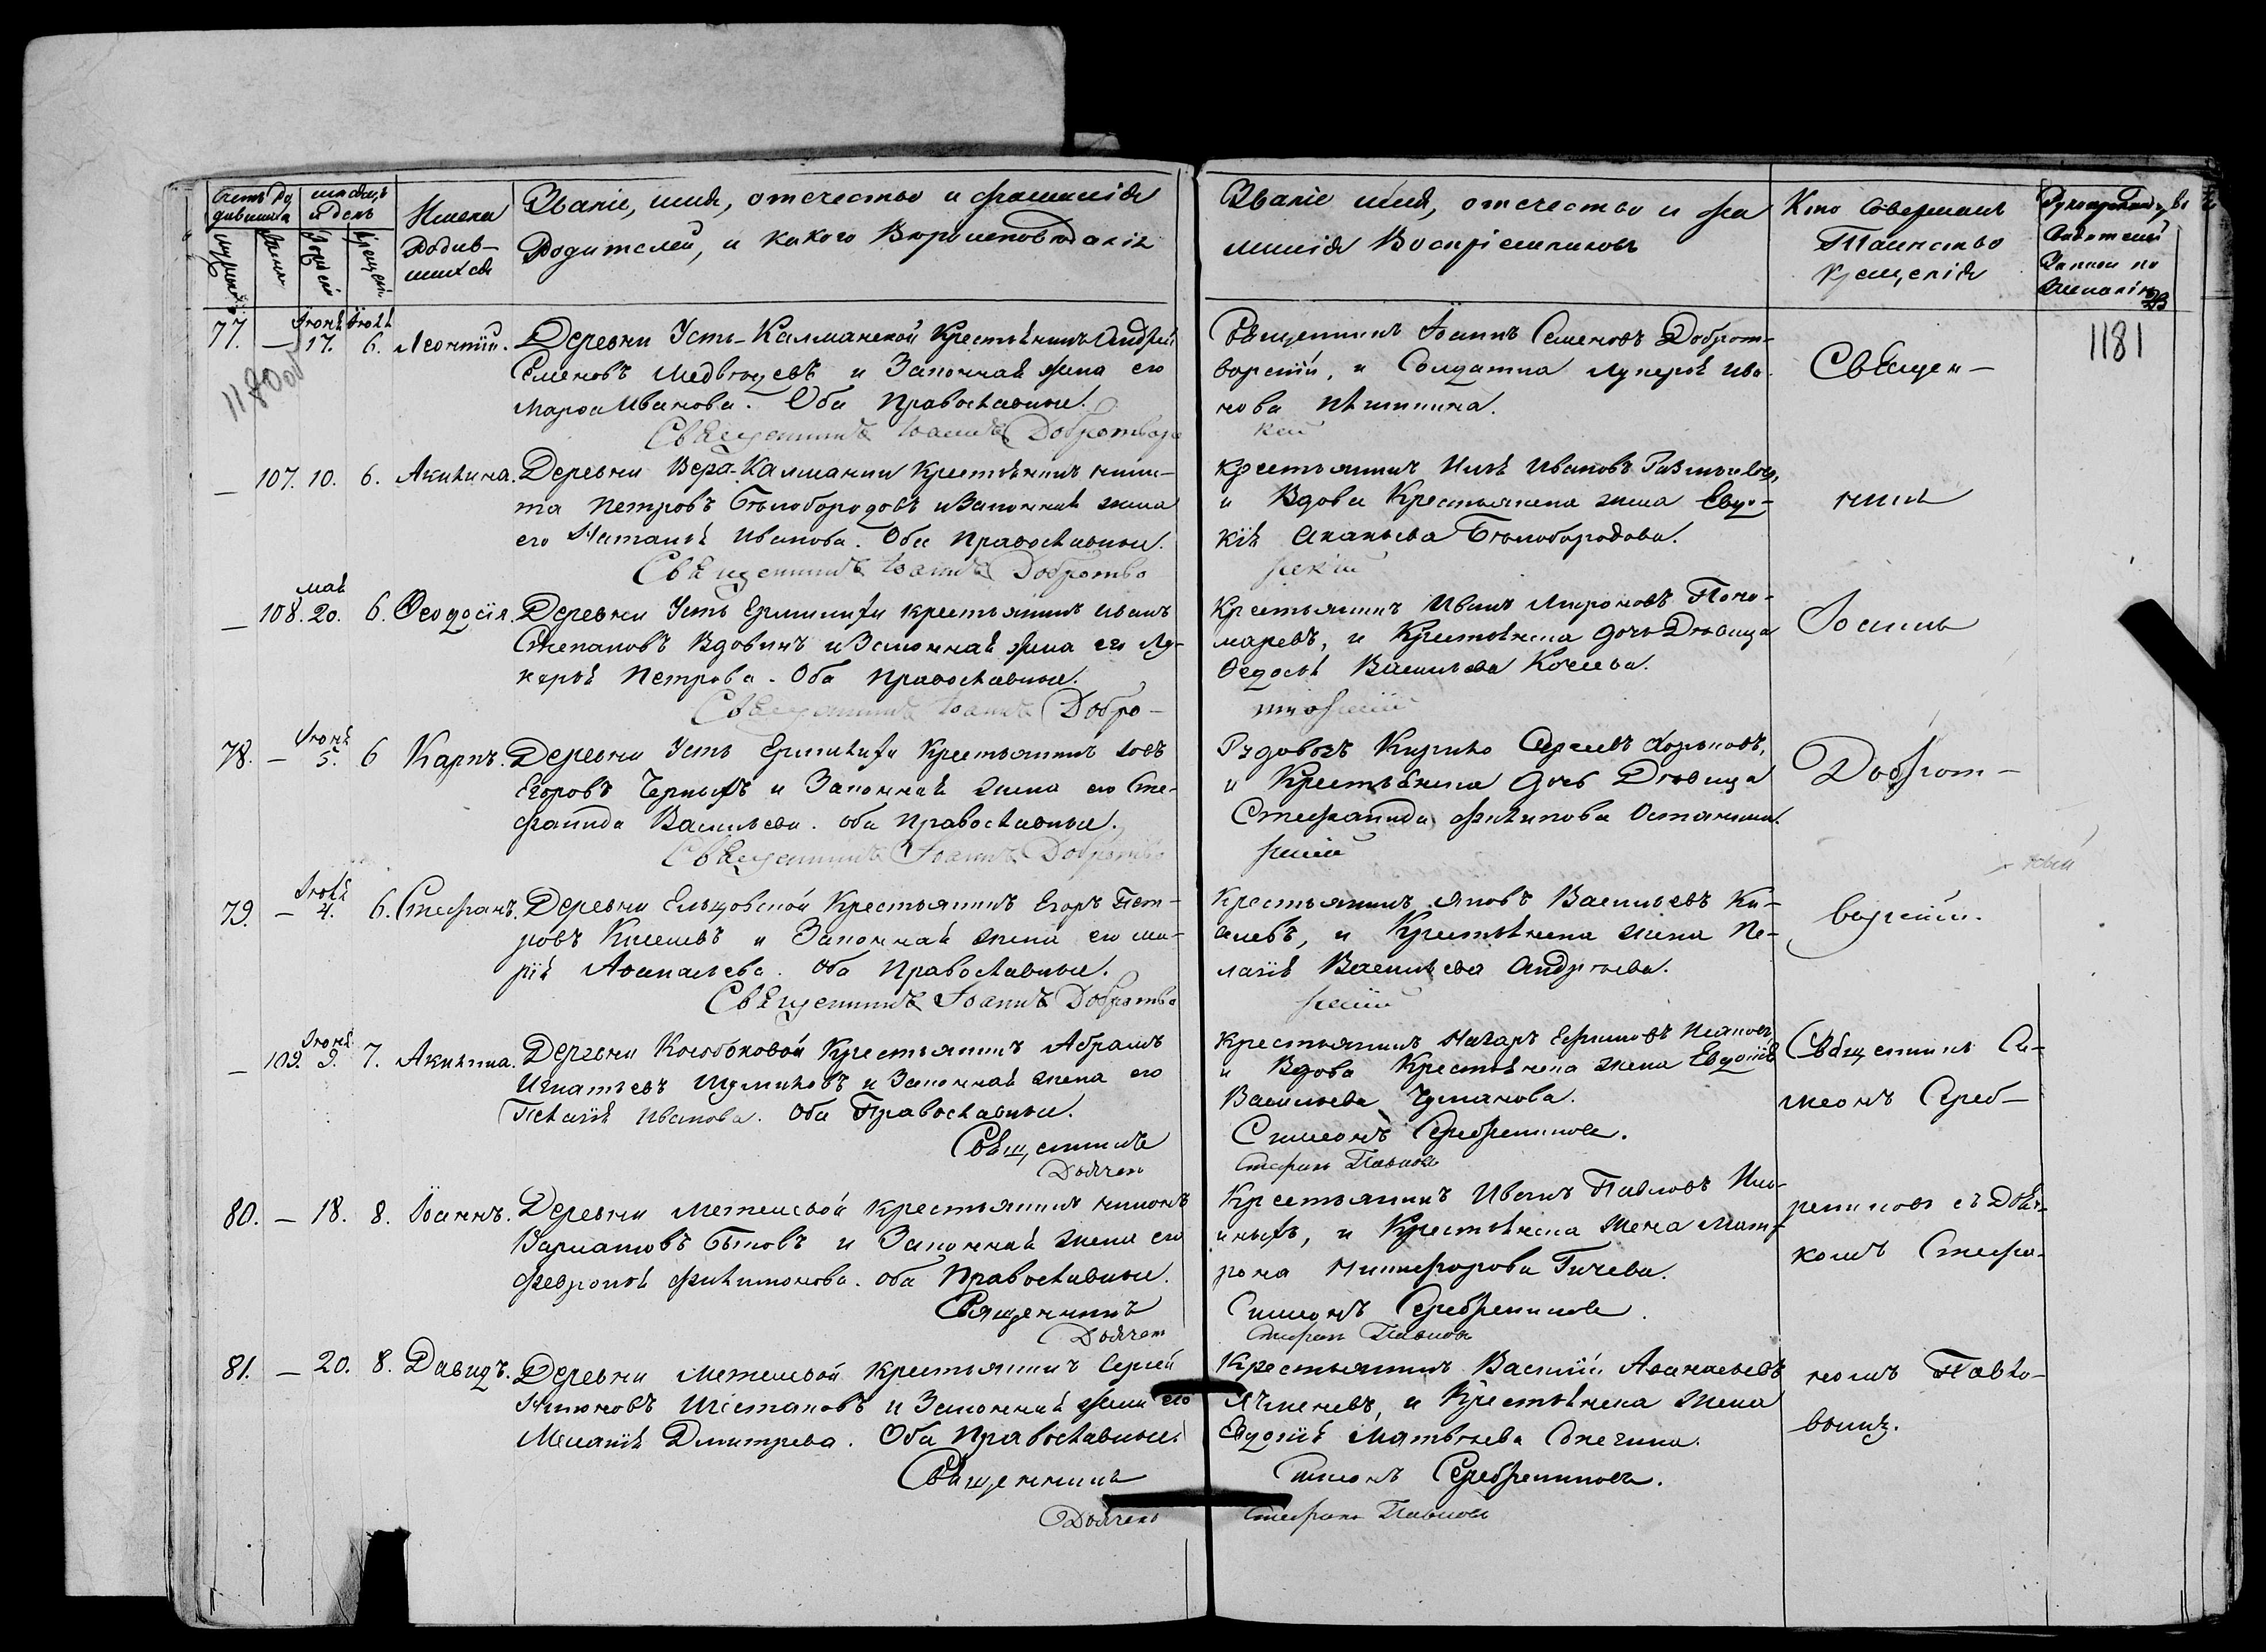 Счетъ Ро
дившихся
мѣсяцъ
и день
Имена
Родив-
шихся
Званіе, имя, отечество и фамилія
Родителей, и какого Вѣроисповѣданія
Званіе имя, отечество и фа
милія Воспріемниковъ
Кто Совершалъ
Таинство
Крещенія
1181
1180 об
77. — Іюня 17. Іюля 6. Леонтій. Деревни Усть-Калманской Крестьянинъ Андрей
Семеновъ Медвѣдевъ и Законная жена его
Марѳа Иванова. Оба Православные.
Священникъ Іоаннъ Добротвор
Священникъ Іоаннъ Семеновъ Доброт-
ворскій, и Солдатка Лукерья Ива
нова
скій
Священ-
— 107. 10. 6. Акилина. Деревни Верх-Калманки Крестьянинъ Ники-
та Петровъ Бѣлобородовъ и Законная жена
его Наталья Иванова. Оба Православные.
Священникъ Іоаннъ Добротво
Крестьянинъ Илья Ивановъ
и Вдова Крестьянская жена Евдо-
кія Ананьева Бѣлобородова.
рскій
никъ
— 108. мая 20. 6. Ѳеодосія. Деревни Усть Ермилихи крестьянинъ Иванъ
Степановъ Вдовинъ и Законная жена его Лу-
керья Петрова. Оба Православные.
Священникъ Іоаннъ Добро-
Крестьянинъ Иванъ Мироновъ Поно-
маревъ, и Крестьянская дочь Дѣвица
Ѳедосья Васильева Кочева.
творскій
Іоаннъ
78. — Іюня 5. 6 Карпъ. Деревни Усть Ермилихи Крестьянинъ Іовъ
Егоровъ Черныхъ и Законная жена его Сте-
фанида Васильева. Оба Православные.
Священникъ Іоаннъ Добротво
Рядовой Кирило Сергеевъ
и Крестьянская дочь Дѣвица
Стефанида Филипова Останина.
рскій
Доброт-
79. — Іюля 4. 6. Стефанъ. Деревни Ельцовской Крестьянинъ Егоръ Пет-
ровъ Киселевъ и Законная жена его Ма-
рія Аѳанасьева. Оба Православные.
Священникъ Іоаннъ Добротво
Крестьянинъ Яковъ Васильевъ Ки-
селевъ, и Крестьянская жена Пе-
лагія Васильева Андреева.
рскій
ворскій.
— 109. Іюня 9. 7. Акилина. Деревни Кособоковой Крестьянинъ Абрамъ
Игнатьевъ Шумиловъ и Законная жена его
Пелагія Иванова. Оба Православные.
Священникъ
Дьячекъ
Крестьянинъ Назаръ Ефимовъ
и Вдова Крестьянская жена Евдокія
Васильева Чуманова.
Симеонъ Серебренниковъ.
Стефанъ Павловъ
Священникъ Си-
меонъ Сереб-
80. — 18. 8. Іоаннъ. Деревни Метелевой крестьянинъ Никонъ
Варламовъ Бытовъ и Законная жена его
Февронья Филимонова. Оба Православные.
Священникъ
Дьячекъ
Крестьянинъ Иванъ Павловъ
иныхъ, и Крестьянская жена Мат-
рона Никифорова Гичева.
Симеонъ Серебренниковъ.
Стефанъ Павловъ
ренниковъ съ Дьяч-
комъ Стефа-
81. — 20. 8. Давидъ. Деревни Метелевой крестьянинъ Сергей
Антоновъ Шестаковъ и Законная жена его
Меланія Дмитрева. Оба Православные.
Священникъ
Дьячекъ
Крестьянинъ Василій Аѳанасьевъ
Ячменевъ, и Крестьянская жена
Евдокія Матвѣева Снегина.
Симеонъ Серебренниковъ.
Стефанъ Павловъ
номъ Павло-
вымъ.